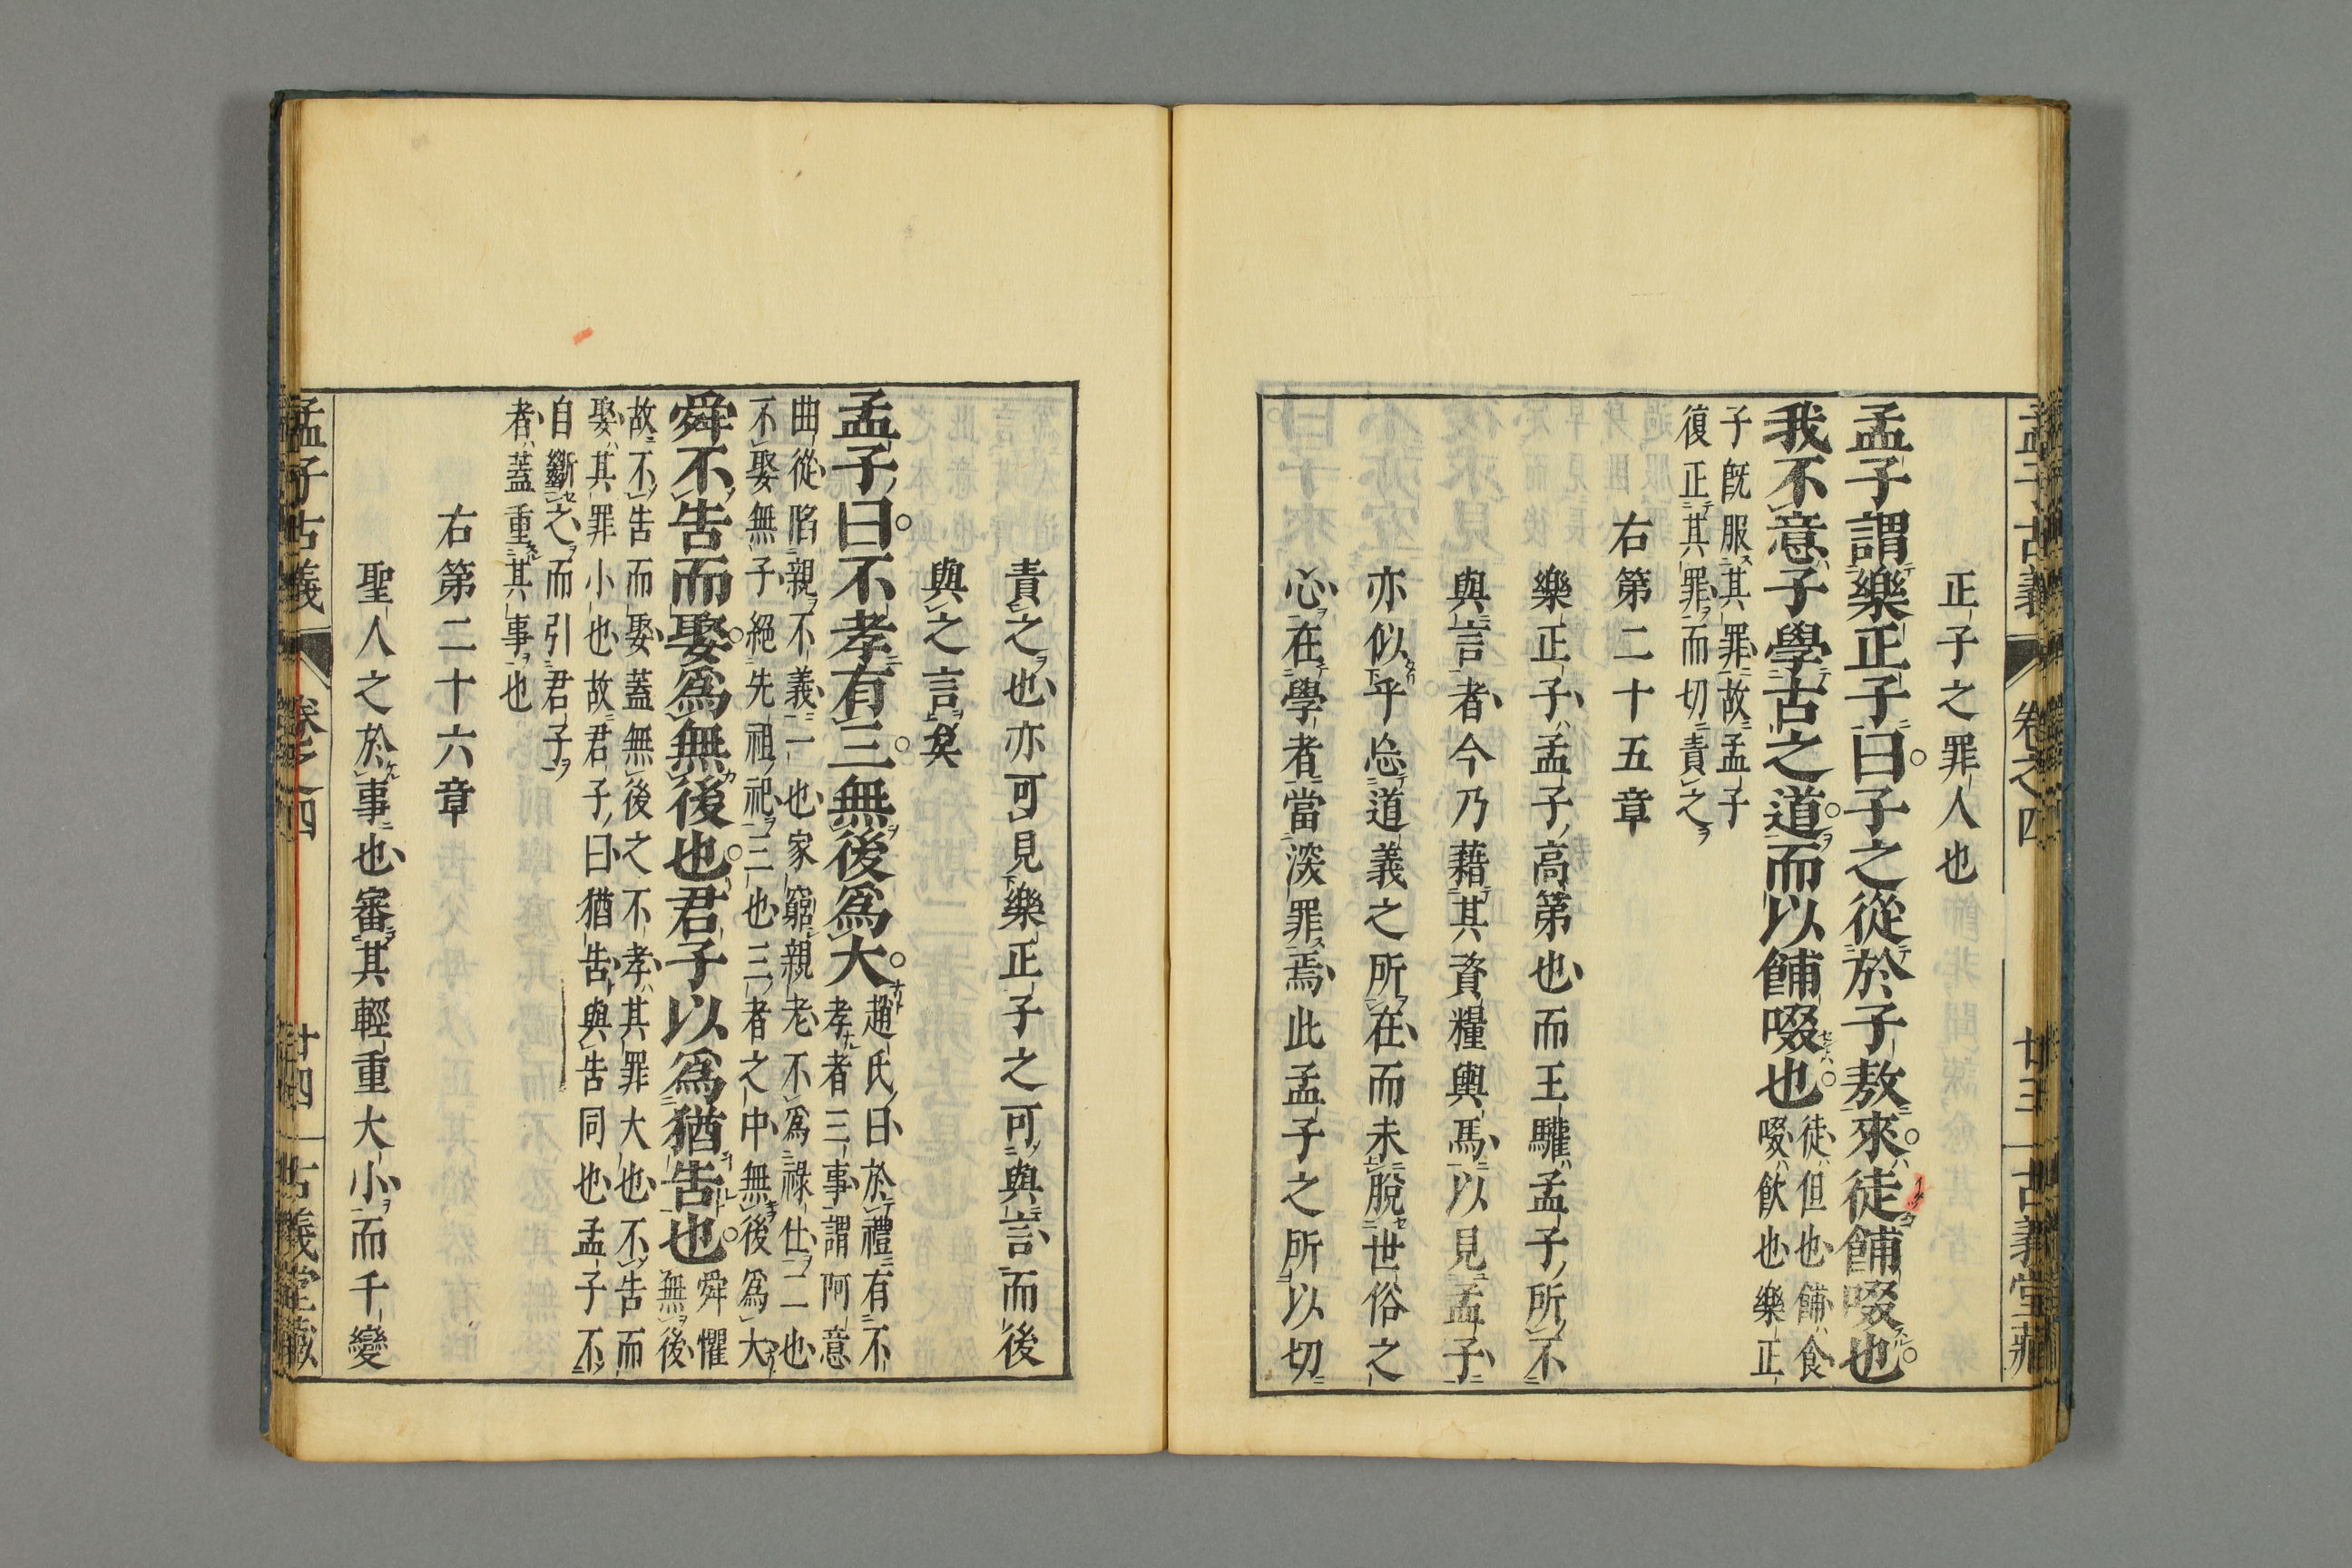 孟子古義 卷之四 廿三 古義堂藏
正子之罪人也
孟子謂樂正子曰子之從於子敖來徒餔啜也
我不意子學古之道而以餔啜也
徒但也餔食
啜飲也樂正
子既服其罪故孟子
復正其罪而切責之
右第二十五章
樂正子孟子高第也而王驩孟子所不
與言者今乃藉其資糧輿馬以見孟子
亦似乎忘道義之所在而未脫世俗之
心在學者當深罪焉此孟子之所以切
責之也亦可見樂正子之可與言而後
與之言矣
孟子曰不孝有三無後爲大
趙氏曰於禮有不
孝者三事謂阿意
曲從陷親不義一也家窮親老不爲祿仕二也
不娶無子絕先祖祀三也三者之中無後爲大
舜不告而娶爲無後也君子以爲猶告也
舜懼
無後
故不告而娶蓋無後之不孝其罪大也不告而
娶其罪小也故君子曰猶告與告同也孟子不
自斷之而引君子
者蓋重其事也
右第二十六章
聖人之於事也審其輕重大小而千變
孟子古義 卷之四 廿四 古義堂藏